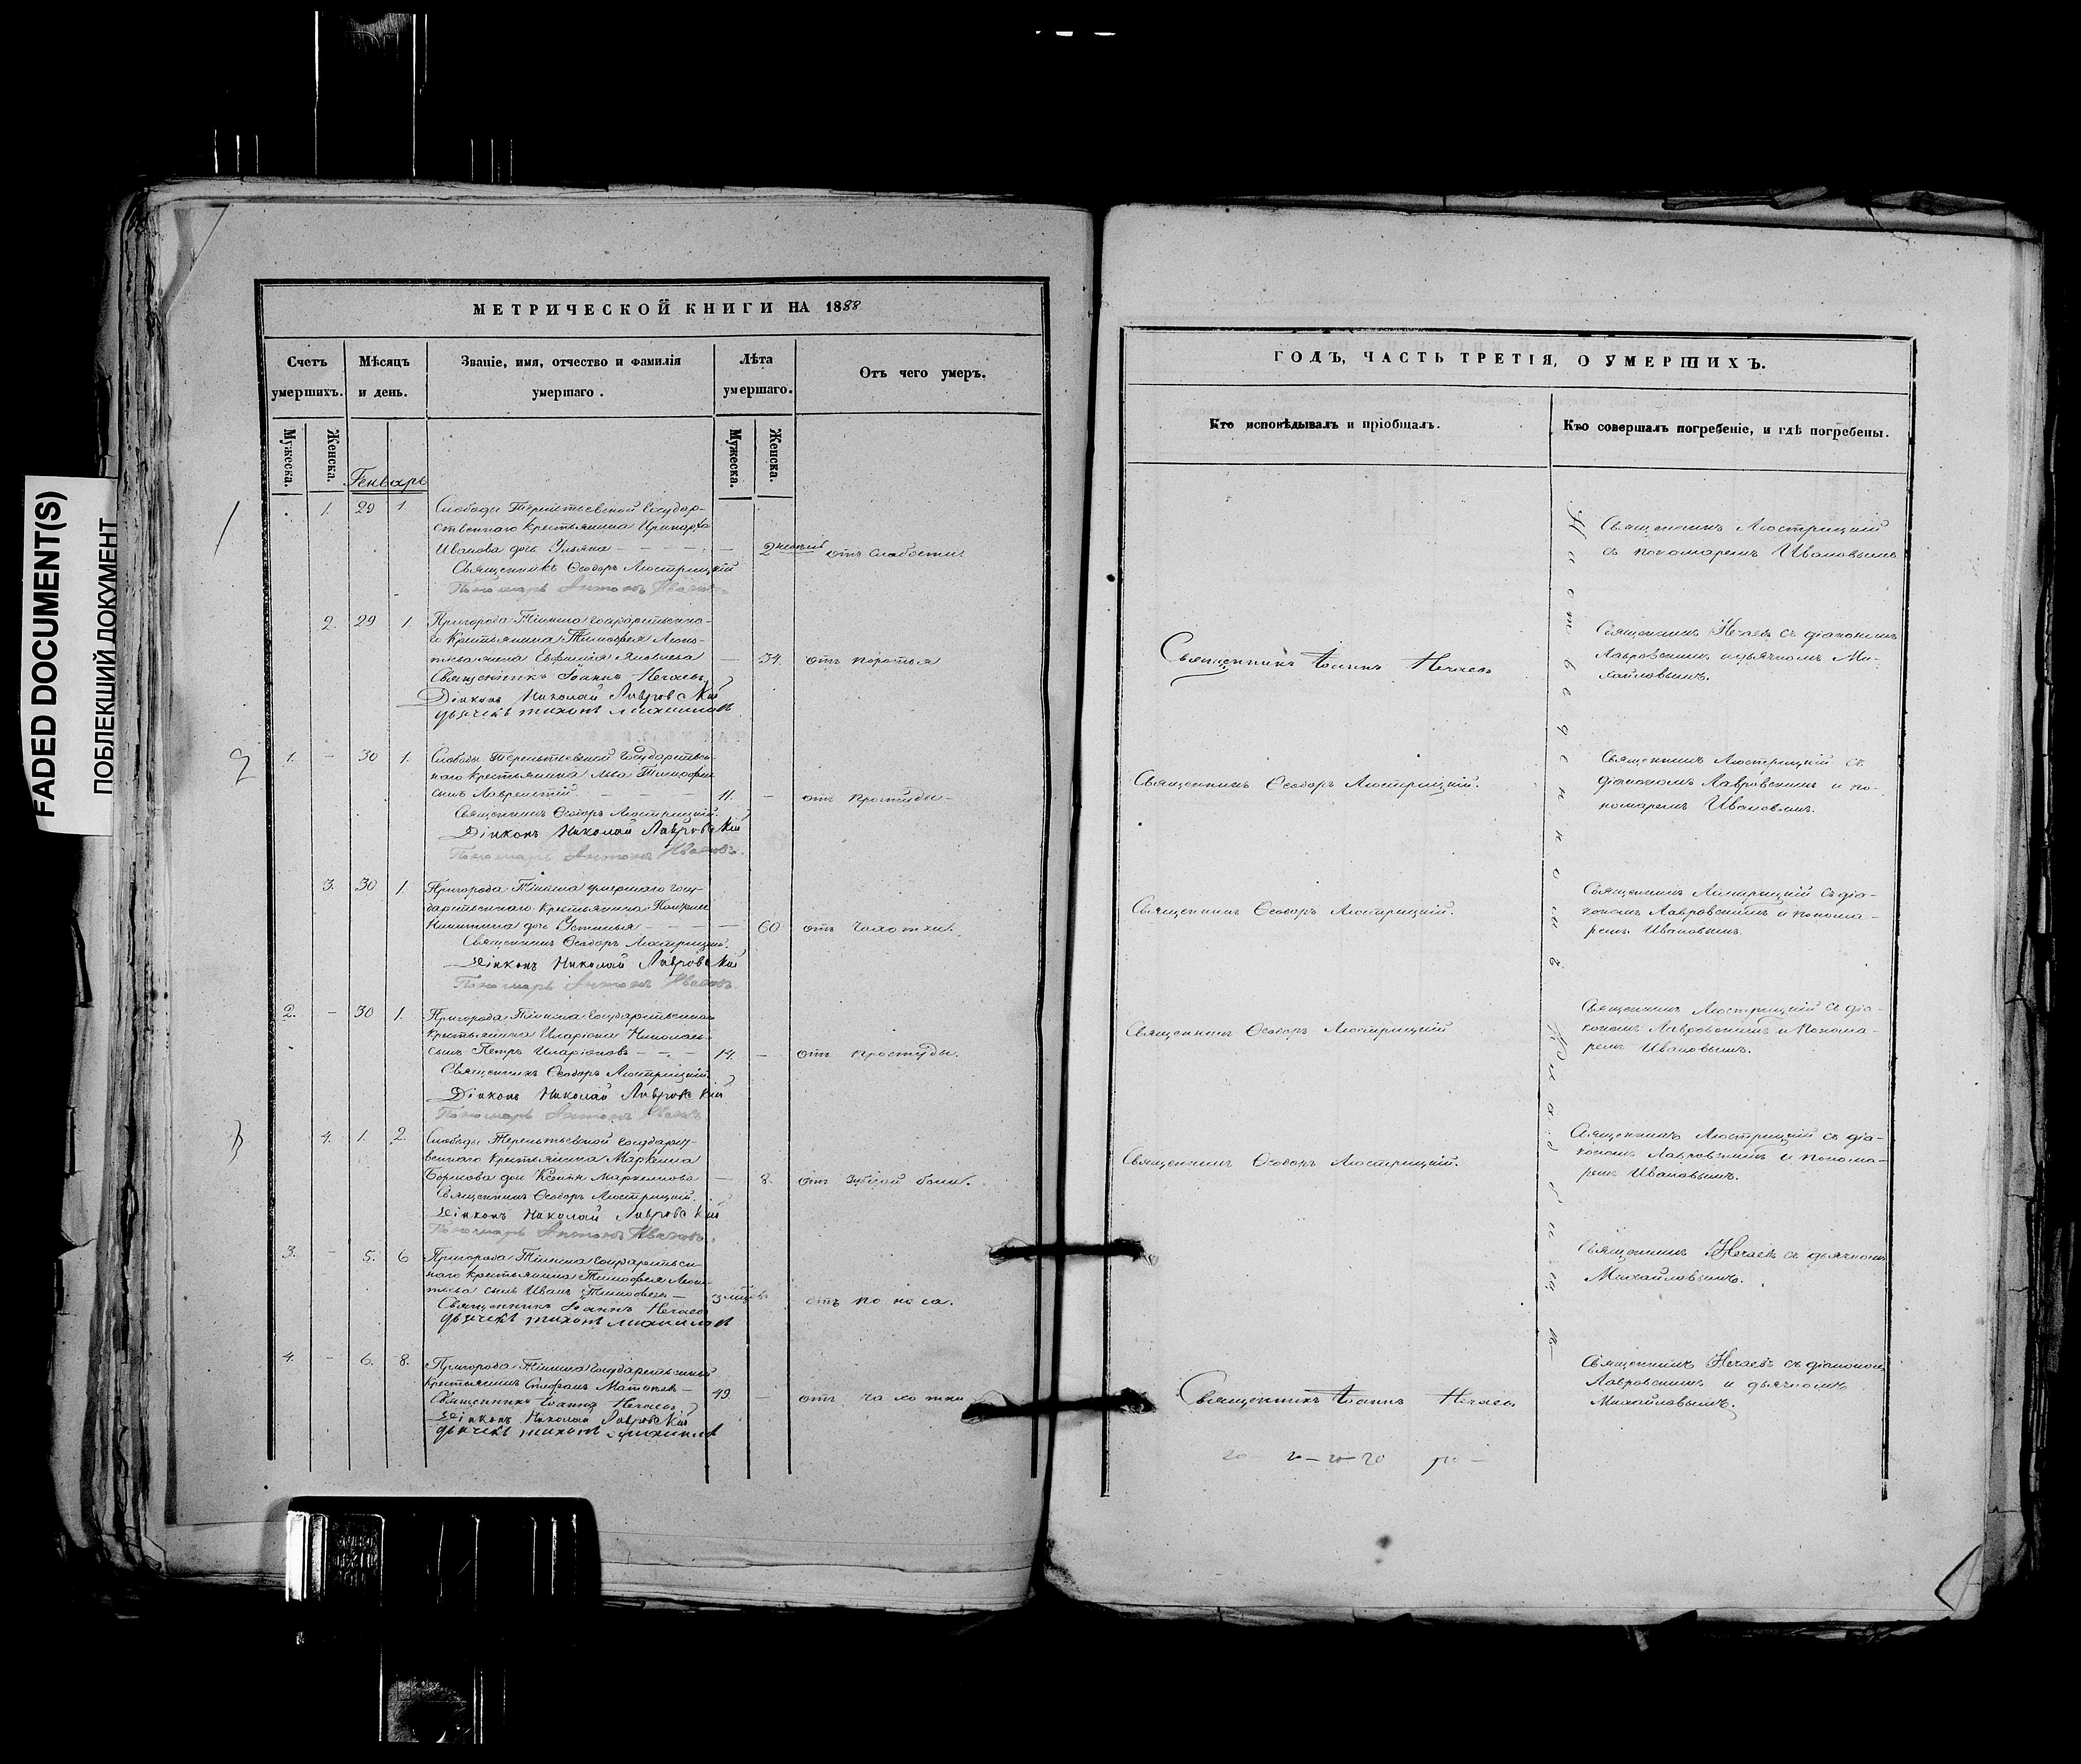 FADED DOCUMENT(S)
ПОБЛЕКШИЙ ДОКУМЕНТ
МЕТРИЧЕСКОЙ КНИГИ НА 1888
Счетъ умершихъ.
Мѣсяцъ и день.
Званіе, имя, отчество и фамилія умершаго.
Лѣта умершаго.
Отъ чего умеръ.
Мужеска.
Женска.
Генварь
Мужеска.
Женска.
1. 29 1. Слободы Терентьевской Государ-
ственнаго крестьянина
Иванова дочь Ульяна — 2 недѣль отъ слабости.
Священникъ Ѳеодоръ Люстрицкій
Пономарь Антонъ Ивановъ
2. 29 1. Пригорода Тіинска Государственна-
го Крестьянина Тимофея Леон-
тьева жена Евфимія Яковлева — 34. отъ
Священникъ Іоаннъ Нечаевъ
Діаконъ Николай Лавровскій
дьячекъ тихонъ михаиловъ
2
1. — 30 1. Слободы Терентьевской Государствен-
наго крестьянина Льва Тимофѣева
сынъ Лаврентій — 11. — отъ простуды —
Священникъ Ѳеодоръ Люстрицкій.
Діаконъ Николай Лавровскій
Пономарь Антонъ Ивановъ.
3. 30 1. Пригорода Тіинска умершаго госу-
дарственнаго крестьянина
Никитина дочь Устинья — 60 отъ чахотки.
Священникъ Ѳеодоръ Люстрицкій.
Діаконъ Николай Лавровскій
Пономарь Антонъ Ивановъ.
2. — 30 1. Пригорода Тіинска Государственнаго
крестьянина Иларіона Николаева
сынъ Петръ Иларіоновъ — 14. — отъ простуды.
Священникъ Ѳеодоръ Люстрицкій
Діаконъ Николай Лавровскій
Пономарь Антонъ Ивановъ
3
4. 1. 2. Слободы Терентьевской Государст-
веннаго крестьянина Маркелла
Борисова дочь Ксенія Маркеллова — 8. отъ зубной боли.
Священникъ Ѳеодоръ Люстрицкій.
Діаконъ Николай Лавровскій
Пономарь Антонъ Ивановъ.
3. — 5. 6 Пригорода Тіинска Государствен-
наго крестьянина Тимофея Леон-
тьева сынъ Иванъ Тимофеевъ — отъ поноса.
Священникъ Іоаннъ Нечаевъ
дьячекъ тихонъ михаиловъ
4. — 6. 8. Пригорода Тіинска Государственный
крестьянинъ Стефанъ — 49 — отъ чахотки
Священникъ Іоаннъ Нечаевъ
Діаконъ Николай Лавровскій
дьячекъ тихонъ михаиловъ
ГОДЪ, ЧАСТЬ ТРЕТІЯ, О УМЕРШИХЪ.
Кто исповѣдывалъ и пріобщалъ.
Кто совершалъ погребеніе, и гдѣ погребены.
Священникъ Люстрицкій
съ пономаремъ Ивановымъ
Священникъ Іоаннъ Нечаевъ
Священникъ Нечаевъ съ діакономъ
Лавровскимъ и дьячкомъ Ми-
хайловымъ.
Священникъ Ѳеодоръ Люстрицкій.
Священникъ Люстрицкій съ
діакономъ Лавровскимъ и по-
номаремъ Ивановымъ.
Священникъ Ѳеодоръ Люстрицкій.
Священникъ Люстрицкій съ діа-
кономъ Лавровскимъ и понома-
ремъ Ивановымъ.
Священникъ Ѳеодоръ Люстрицкій
Священникъ Люстрицкій съ діа-
кономъ Лавровскимъ и понома-
ремъ Ивановымъ.
Священникъ Ѳеодоръ Люстрицкій.
Священникъ Люстрицкій съ діа-
кономъ Лавровскимъ и понома-
ремъ Ивановымъ.
Священникъ Нечаевъ съ дьячкомъ
Михайловымъ.
Священникъ Іоаннъ Нечаевъ
Священникъ Нечаевъ съ діакономъ
Лавровскимъ и дьячкомъ
Михайловымъ.